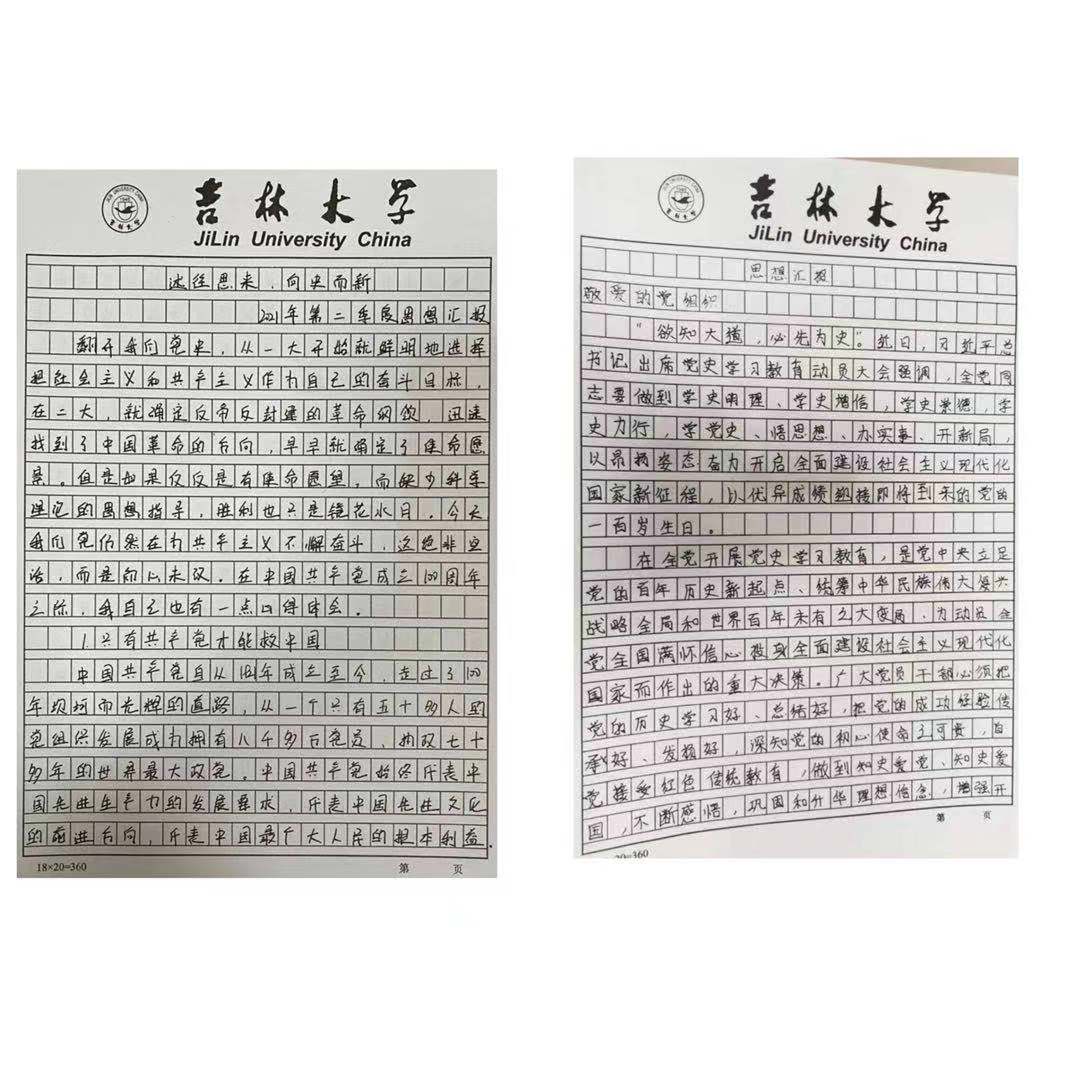 吉林大学
JiLin University China
述往思来，向史而新
2021年第二季度思想汇报
翻开我们党史，从一大开始就鲜明地选择
把社会主义和共产主义作为自己的奋斗目标，
在二大，就确定反帝反封建的革命纲领，迅速
找到了中国革命的方向，早早就确定了使命愿
景。但是如果仅仅是有使命愿望，而缺少科学
坚定的思想指导，胜利也只是镜花水月。今天
我们党仍然在为共产主义不懈奋斗，这绝非宣
治，而是初心未改。在中国共产党成立100周年
之际，我自己也有一点心得体会。
1.只有共产党才能救中国
中国共产党自从1921年成立至今，走过了100
年坎坷而光辉的道路，从一个只有五十多人的
党组织发展成为拥有八千多万党员、执政七十
多年的世界最大政党。中国共产党始终代表中
国先进生产力的发展要求，代表中国先进文化
的前进方向，代表中国最广大人民的根本利益。
18×20=360
第 页
吉林大学
JiLin University China
思想汇报
敬爱的党组织
"欲知大道，必先为史"。近日，习近平总
书记出席党史学习教育动员大会强调，全党同
志要做到学史明理、学史增信，学史崇德，学
史力行，学党史、悟思想、办实事、开新局，
以昂扬姿态奋力开启全面建设社会主义现代化
国家新征程，以优异成绩迎接即将到来的党的
一百岁生日。
在全党开展党史学习教育，是党中央立足
党的百年历史新起点、统筹中华民族伟大复兴
战略全局和世界百年未有之大变局、为动员全
党全国满怀信心投身全面建设社会主义现代化
国家而作出的重大决策。广大党员干部必须把
党的历史学习好、总结好，把党的成功经验传
承好、发扬好，深知党的初心使命之可贵，自
觉接受红色传统教育，做到知史爱党、知史爱
国，不断感悟，巩固和升华理想信念，增强开
20=360
第 页